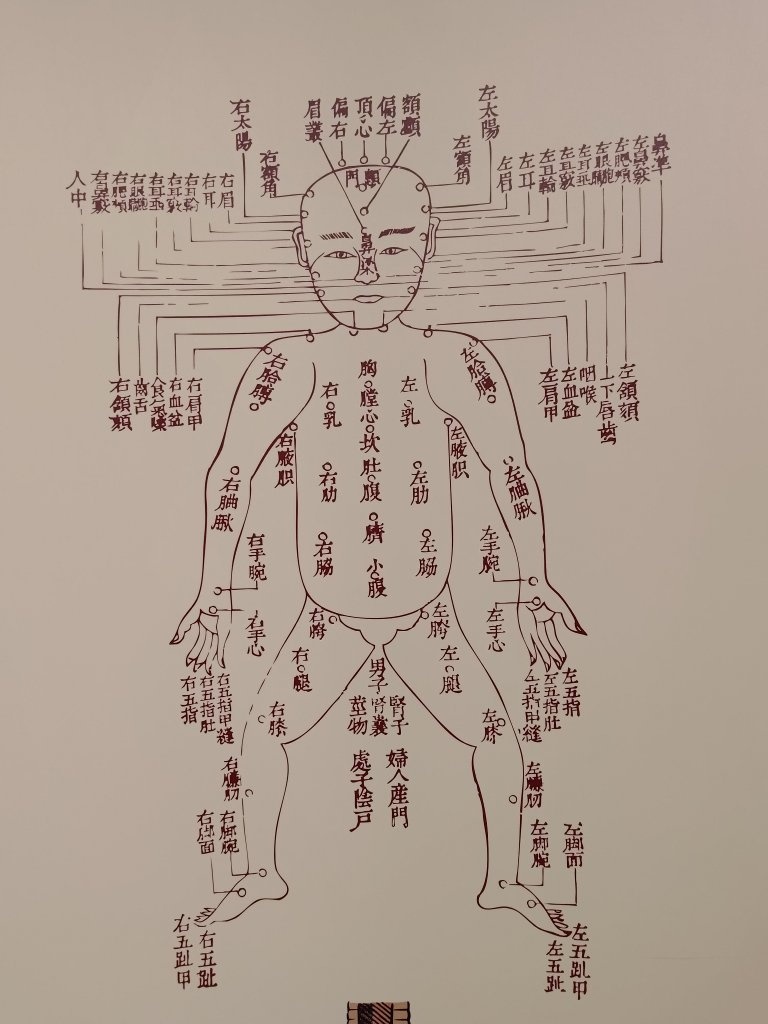 右太陽
眉叢
偏右
頂心
偏左
額顱
左太陽
右額角
左額角
顖門
人中
右鼻竅
右腮頰
右眼胞
右耳垂
右耳竅
右耳輪
右耳
右眉
左眉
左耳
左耳輪
左耳竅
左耳垂
左眼胞
左腮頰
左鼻竅
鼻準
鼻梁
右頷頦
齒舌
食氣嗓
右血盆
右肩甲
左肩甲
左血盆
咽喉
上下唇齒
左頷頦
右肐膊
左肐膊
胸膛
心坎
肚腹
臍
小腹
右乳
左乳
右腋胑
左腋胑
右肋
左肋
右脇
左脇
右䏔𦟛
左䏔𦟛
右手腕
左手腕
右手心
左手心
右胯
左胯
右五指
右五指肚
右五指甲縫
左五指甲縫
左五指肚
左五指
右腿
左腿
男子
莖物
腎囊
腎子
婦人産門
處子陰戶
右膝
左膝
右臁肕
左臁肕
右脚面
右脚腕
左脚腕
左脚面
右五趾甲
右五趾
左五趾
左五趾甲